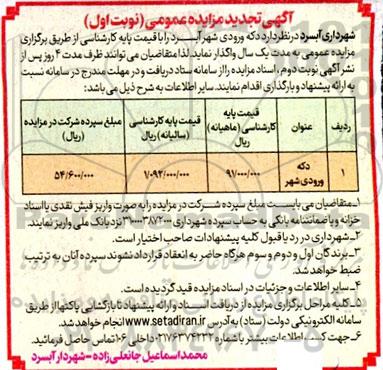 آگهی تجدید مزایده عمومی (نوبت اول)
شهرداری آبسرد درنظر دارد دکه ورودی شهر آبسرد را با قیمت پایه کارشناسی از طریق برگزاری
مزایده عمومی به مدت یک سال واگذار نماید. لذا متقاضیان می توانند ظرف مدت ۴ روز پس از
نشر آگهی نوبت دوم، اسناد مزایده را از سامانه ستاد دریافت و در مهلت مندرج در سامانه نسبت
به ارائه پیشنهاد و بارگذاری اقدام نمایند. سایر اطلاعات به شرح ذیل می باشد:
ردیف عنوان قیمت پایه کارشناسی (ماهیانه) ریال قیمت پایه کارشناسی (سالیانه) ریال مبلغ سپرده شرکت در مزایده (ریال)
۱ دکه ورودی شهر ۹۱/۰۰۰/۰۰۰ ۱/۰۹۲/۰۰۰/۰۰۰ ۵۴/۶۰۰/۰۰۰
۱_متقاضیان می بایست مبلغ سپرده شرکت در مزایده را به صورت واریز فیش نقدی یا اسناد
خزانه و یا ضمانتنامه بانکی به حساب سپرده شهرداری نزد بانک ملی واریز نمایند.
۲_شهرداری در رد یا قبول کلیه پیشنهادات صاحب اختیار است.
۳_برندگان اول و دوم و سوم هرگاه حاضر به انعقاد قرارداد نشوند سپرده آنان به ترتیب
ضبط خواهد شد.
۴_سایر اطلاعات و جزئیات در اسناد مزایده قید گردیده است.
۵_کلیه مراحل برگزاری مزایده از دریافت اسناد و ارائه پیشنهاد تا بازگشایی پاکتها از طریق
سامانه الکترونیکی دولت (ستاد) به آدرس www.setadiran.ir انجام خواهد شد.
۶_جهت کسب اطلاعات بیشتر با شماره ۰۲۱۷۶۳۷۴۲۳۲ داخلی ۱۰۶ تماس حاصل فرمائید.
محمد اسماعیل جانعلی زاده - شهردار آبسرد